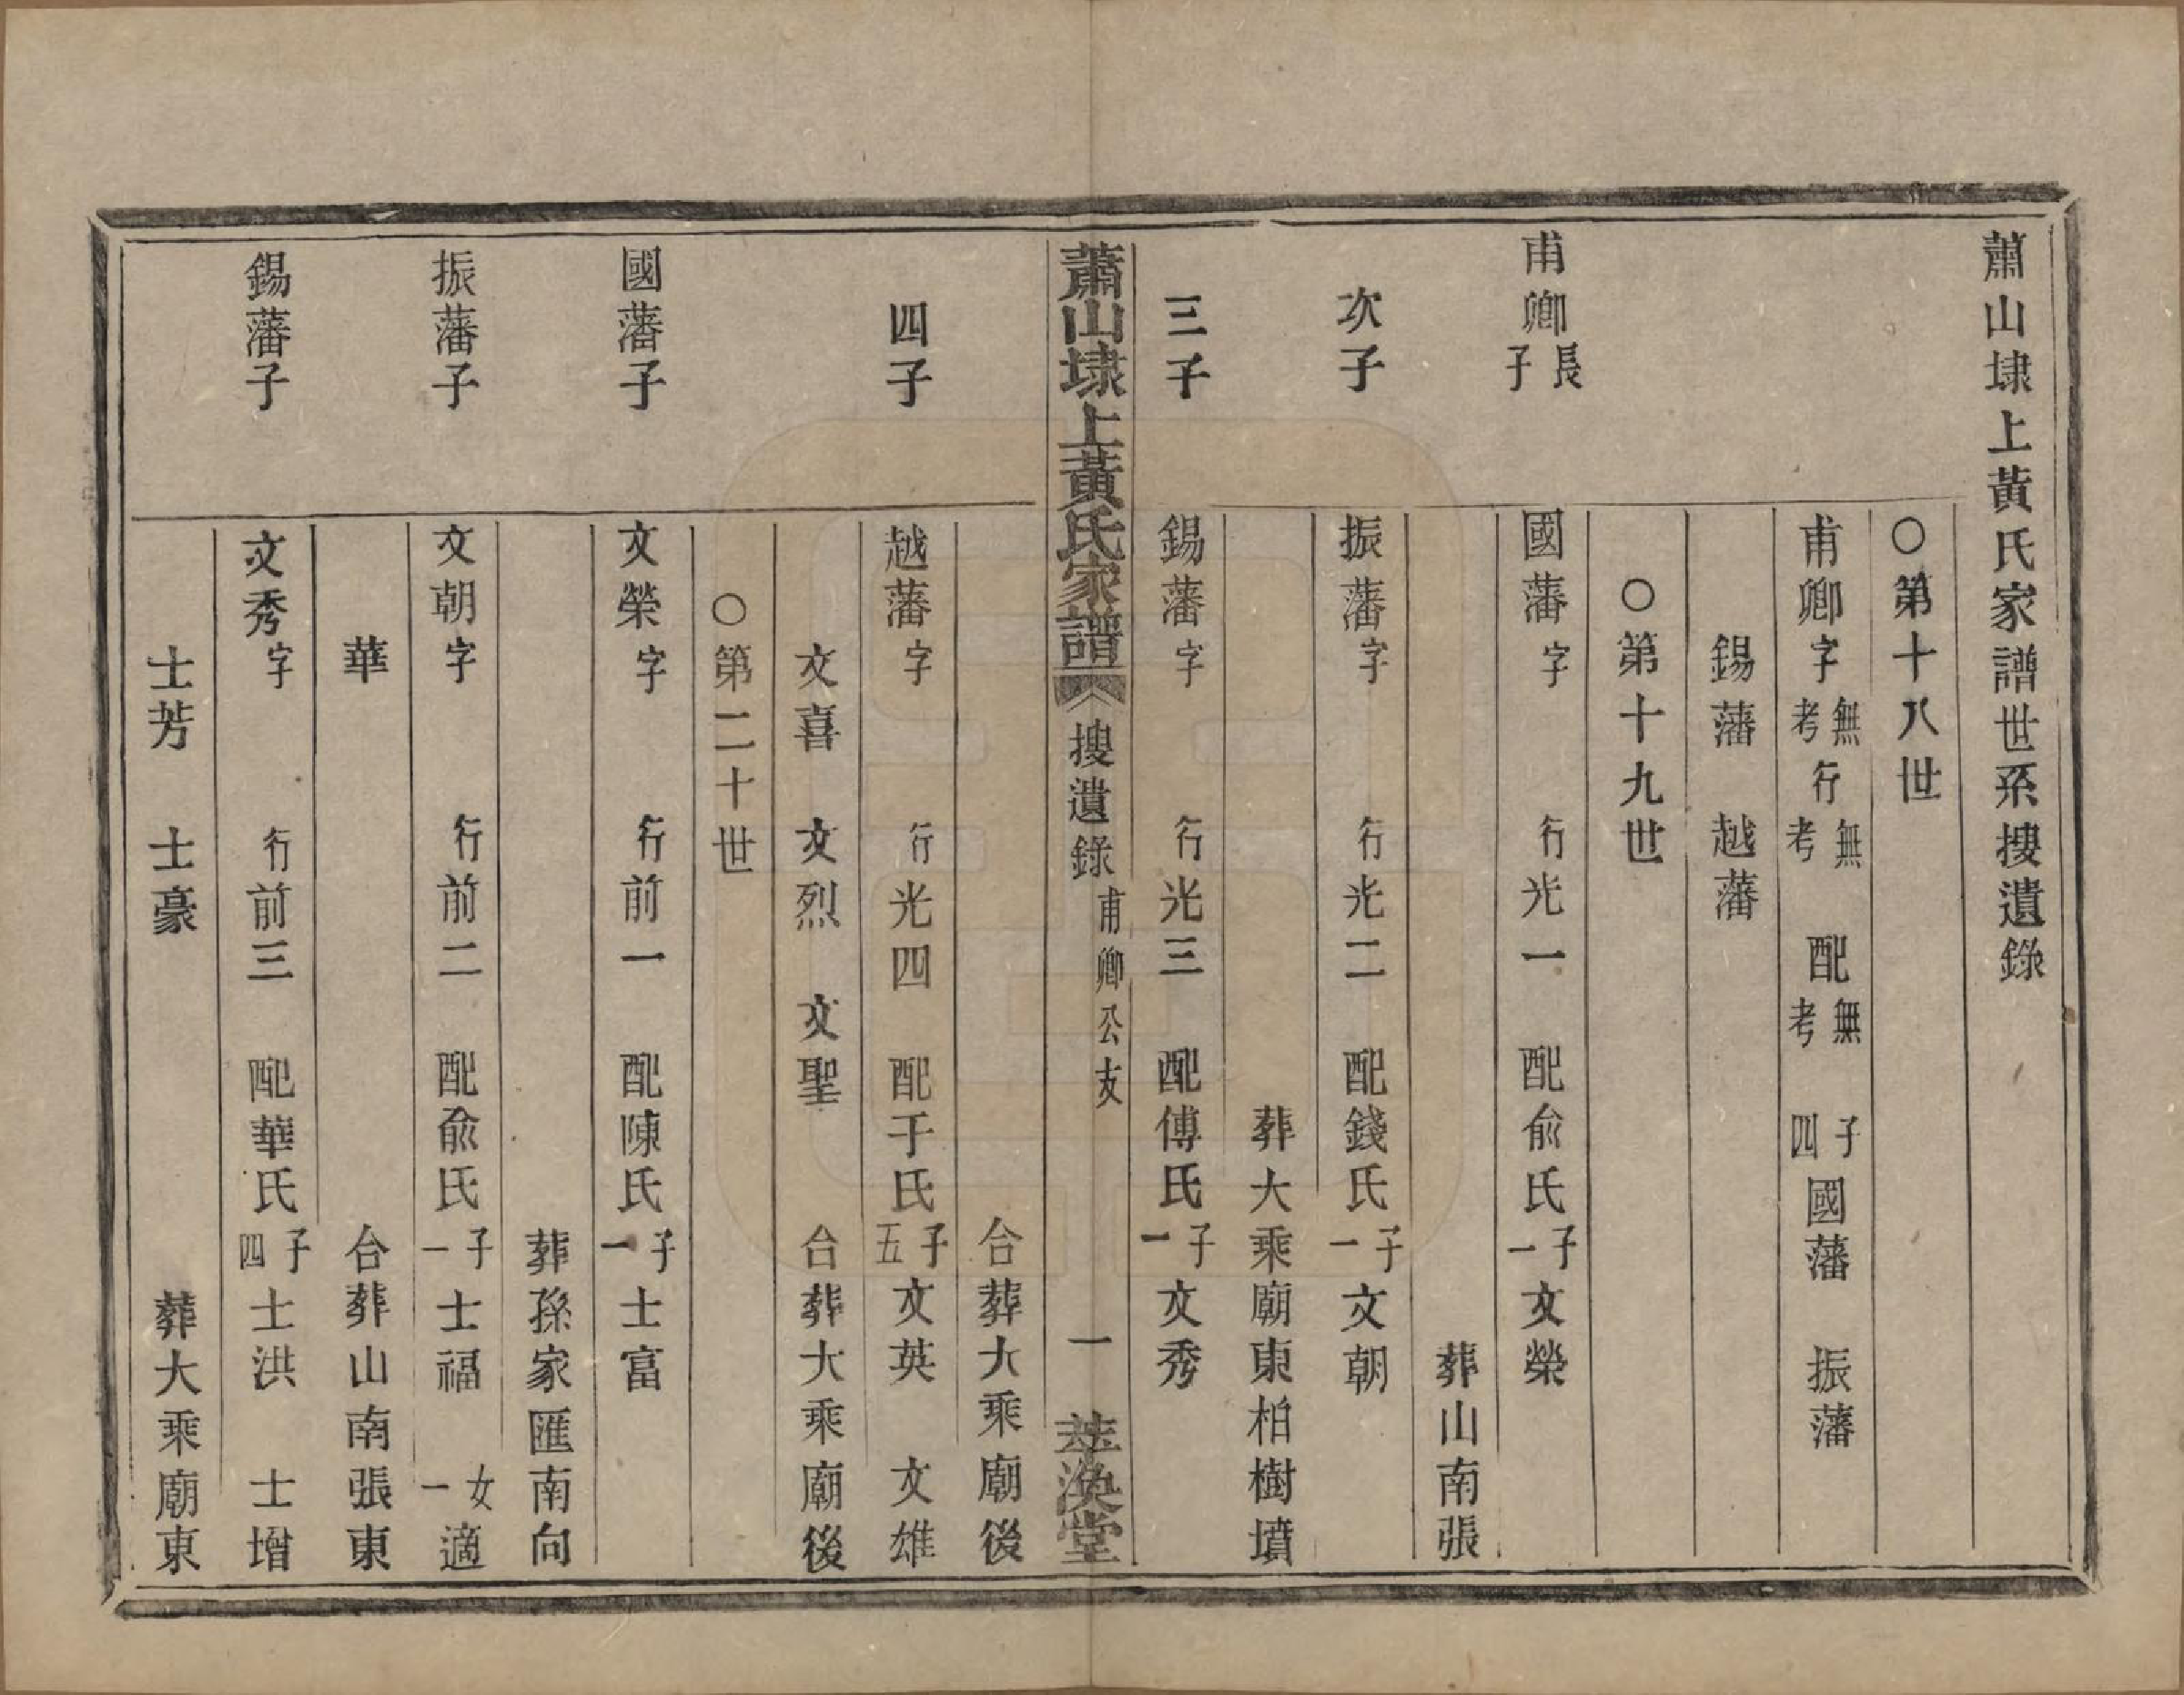 蕭山埭上黃氏家譜世系搜遺錄
○第十八世
甫卿字無考行無考 配無考 子四國藩 振藩
錫藩 越藩
○第十九世
甫卿長子 國藩字 行光一 配俞氏子一文榮
葬山南張
次子 振藩字 行光二 配錢氏子一文朝
葬大乘廟東柏樹墳
三子 錫藩字 行光三 配傅氏子一文秀
蕭山埭上黃氏家譜 搜遺錄 甫卿公支 一 萃渙堂
合葬大乘廟後
四子 越藩字 行光四 配于氏子五文英 文雄
文喜 文烈 文聖 合葬大乘廟後
○第二十世
國藩子 文榮字 行前一 配陳氏子一士富
葬孫家匯南向
振藩子 文朝字 行前二 配俞氏子一士福 女一適
華 合葬山南張東
錫藩子 文秀字 行前三 配華氏子四士洪 士增
士芳 士豪 葬大乘廟東